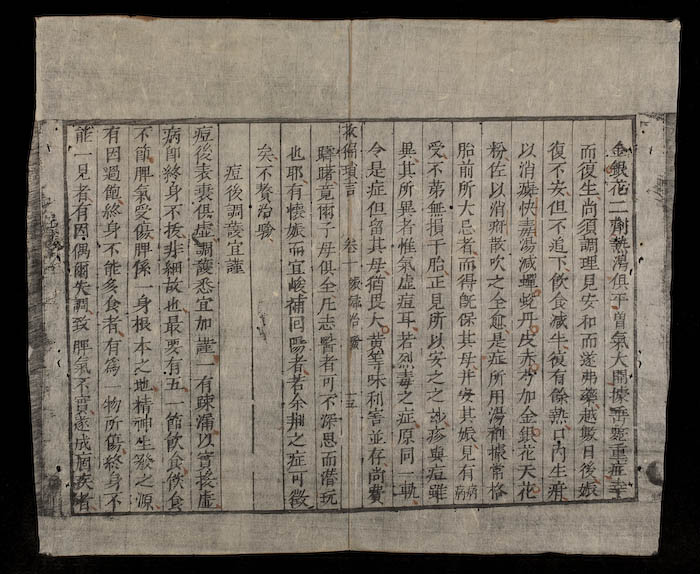 金銀花二劑熱瀉俱平曽氣大開㨿吁逆重症幸
而復生尚須調理見安和而遂弗藥越數日後娠
復不安但不迫下飲食減半復有餘熱口內生疳
以消癍快𤺋湯減蟬蛻丹皮赤芍加金銀花天花
粉佐以消疳散吹之全愈是症所用湯劑據常格
胎前所大忌者而得既保其母并安其娠見有病病
受不苐無損于胎正見所以安之之玅疹與痘雖
異其所異者惟氣虛痘耳若烈毒之症原同一軌
令是症但留其母猶畏大黃等味利害並存尚費
救偏瑣言 卷一 治驗 十三
躊躇竟爾子母俱全庄志醫者可不深思而潛玩
也耶有懐娠而宜峻補回陽者若余荆之症可徵
矣不贅治驗
痘後調護宜謹
痘後表裏俱虛調護悉宜加謹一有疎漏以實挨虛
病即終身不拔非細故也最要有五一節飲食飲食
不節脾氣受傷脾係一身根本之地精神生發之源
有因過飽終身不能多食者有為一物所傷終身不
能一見者有因偶爾失調致脾氣不實遂成痼疾者